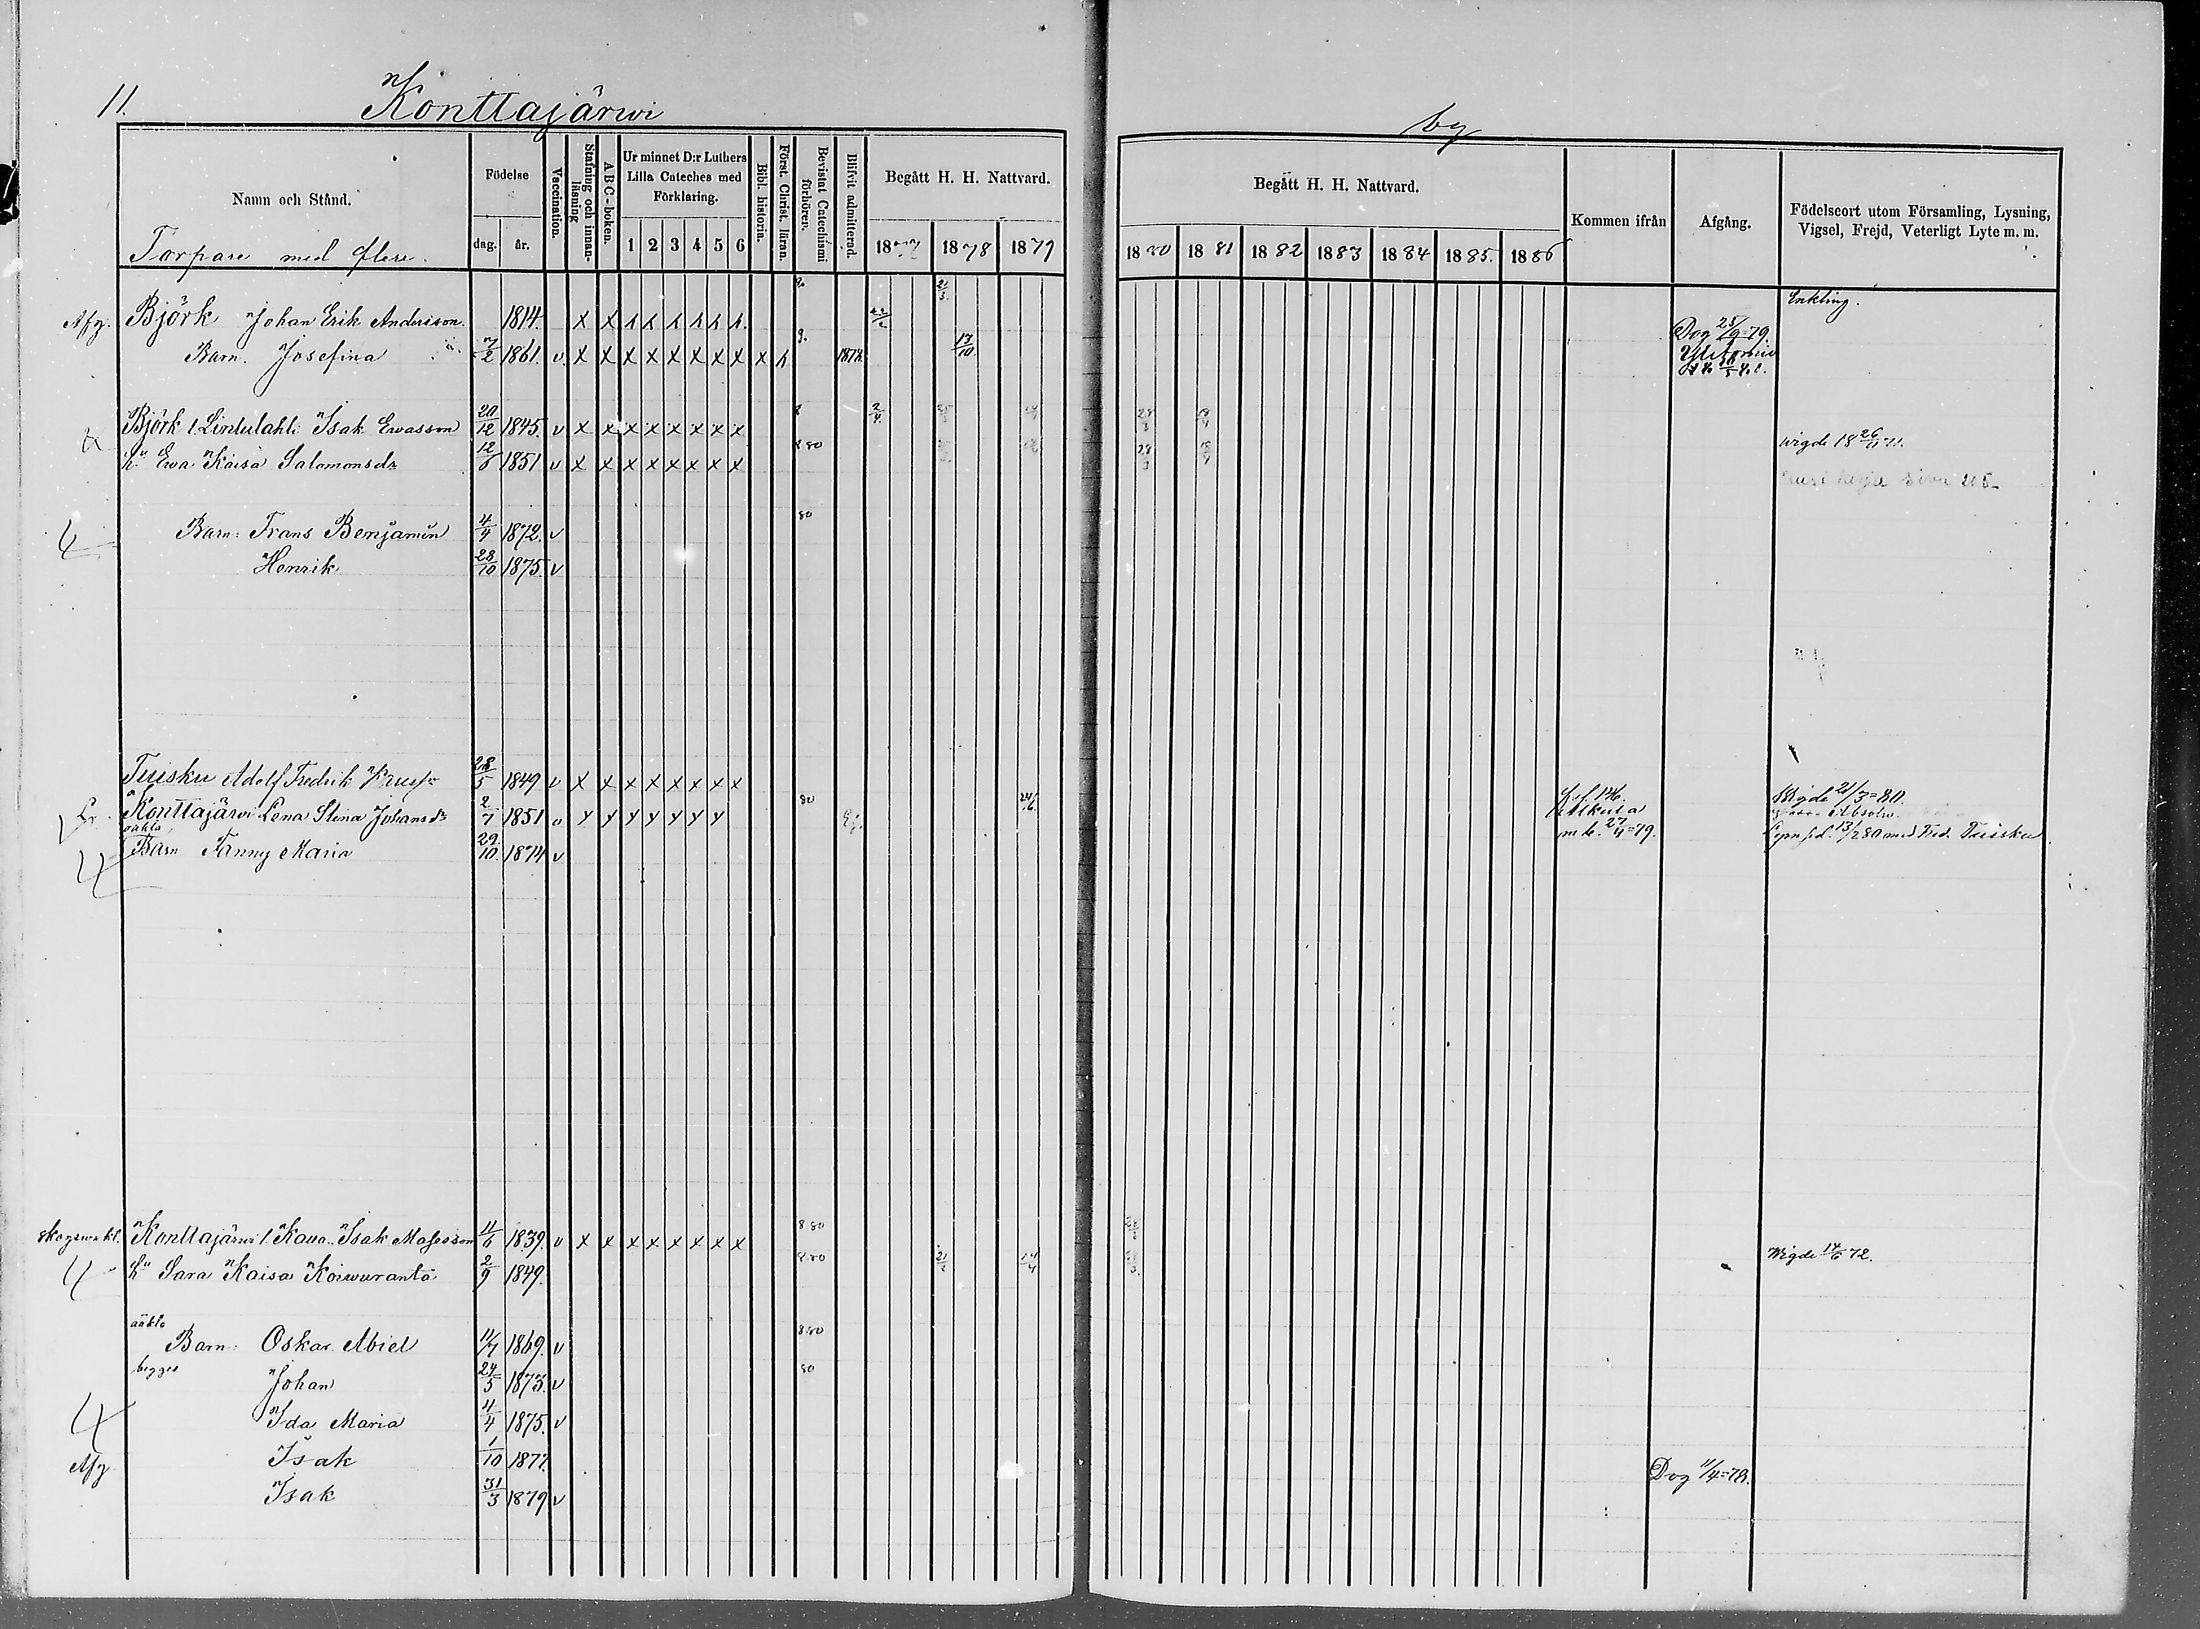 11. Konttajärwi by
Namn och Stånd.
Födelse
dag. år.
Vaccination.
Stafning och innan-läsning
A B C-boken.
Ur minnet D:r Luthers Lilla Cateches med Förklaring.
1 2 3 4 5 6
Bibl. historia.
Först. Christ. läran.
Bevistat Catechismi förhören.
Blifvit admitterad.
Begått H. H. Nattvard.
1877 1878 1879
Begått H. H. Nattvard.
1880 1881 1882 1883 1884 1885. 1886
Kommen ifrån
Afgång.
Födelseort utom Församling, Lysning, Vigsel, Frejd, Veterligt Lyte m. m.
Torpare med flere.
Afg. Björk Johan Erik Andersson. 1814. x x h h h h h h. 21/3 Dog 25/9=79. Enkling.
Barn. Josefina 7/2 1861. v. x x x x x x x x x h 1878. 17/10
Björk l. Lintulahti Isak Ewasson 20/12 1845. v x x x x x x x x 8 2/4
h:u Ewa Kaisa Salomonsdr 12/8 1851 v x x x x x x x x 8 80 wigde 18 26/11 71.
Barn: Frans Benjamin 4/4 1872. v 80
Henrik 28/10 1875. v
Tuisku Adolf Fredrik 28/5 1849 v x x x x x x x x
Konttajärwi Lena Stina Johansdr 2/7 1851 v x x x x x x x 80 24/6. Wigde 21/3=80.
oäkta Barn Fanny Maria 29/10 1874 v m. b. 27/4=79. Absolv. 13/2 80 med Fred. Tuisku
Konttajärwi l. Kaua. Isak Mosesson 11/6 1839. v x x x x x x x x 8 80
h:u Sara Kaisa Koiwuranta 2/9 1849. 8.80 Wigde 14/6 72.
oäkta
Barn: Oskar Abiel 11/7 1869. v 8.80
begges Johan 24/5 1873. v 80
Ida Maria 4/4 1875. v
Afg Isak 1/10 1877. Dog 11/4=78.
Isak 31/3 1879 v